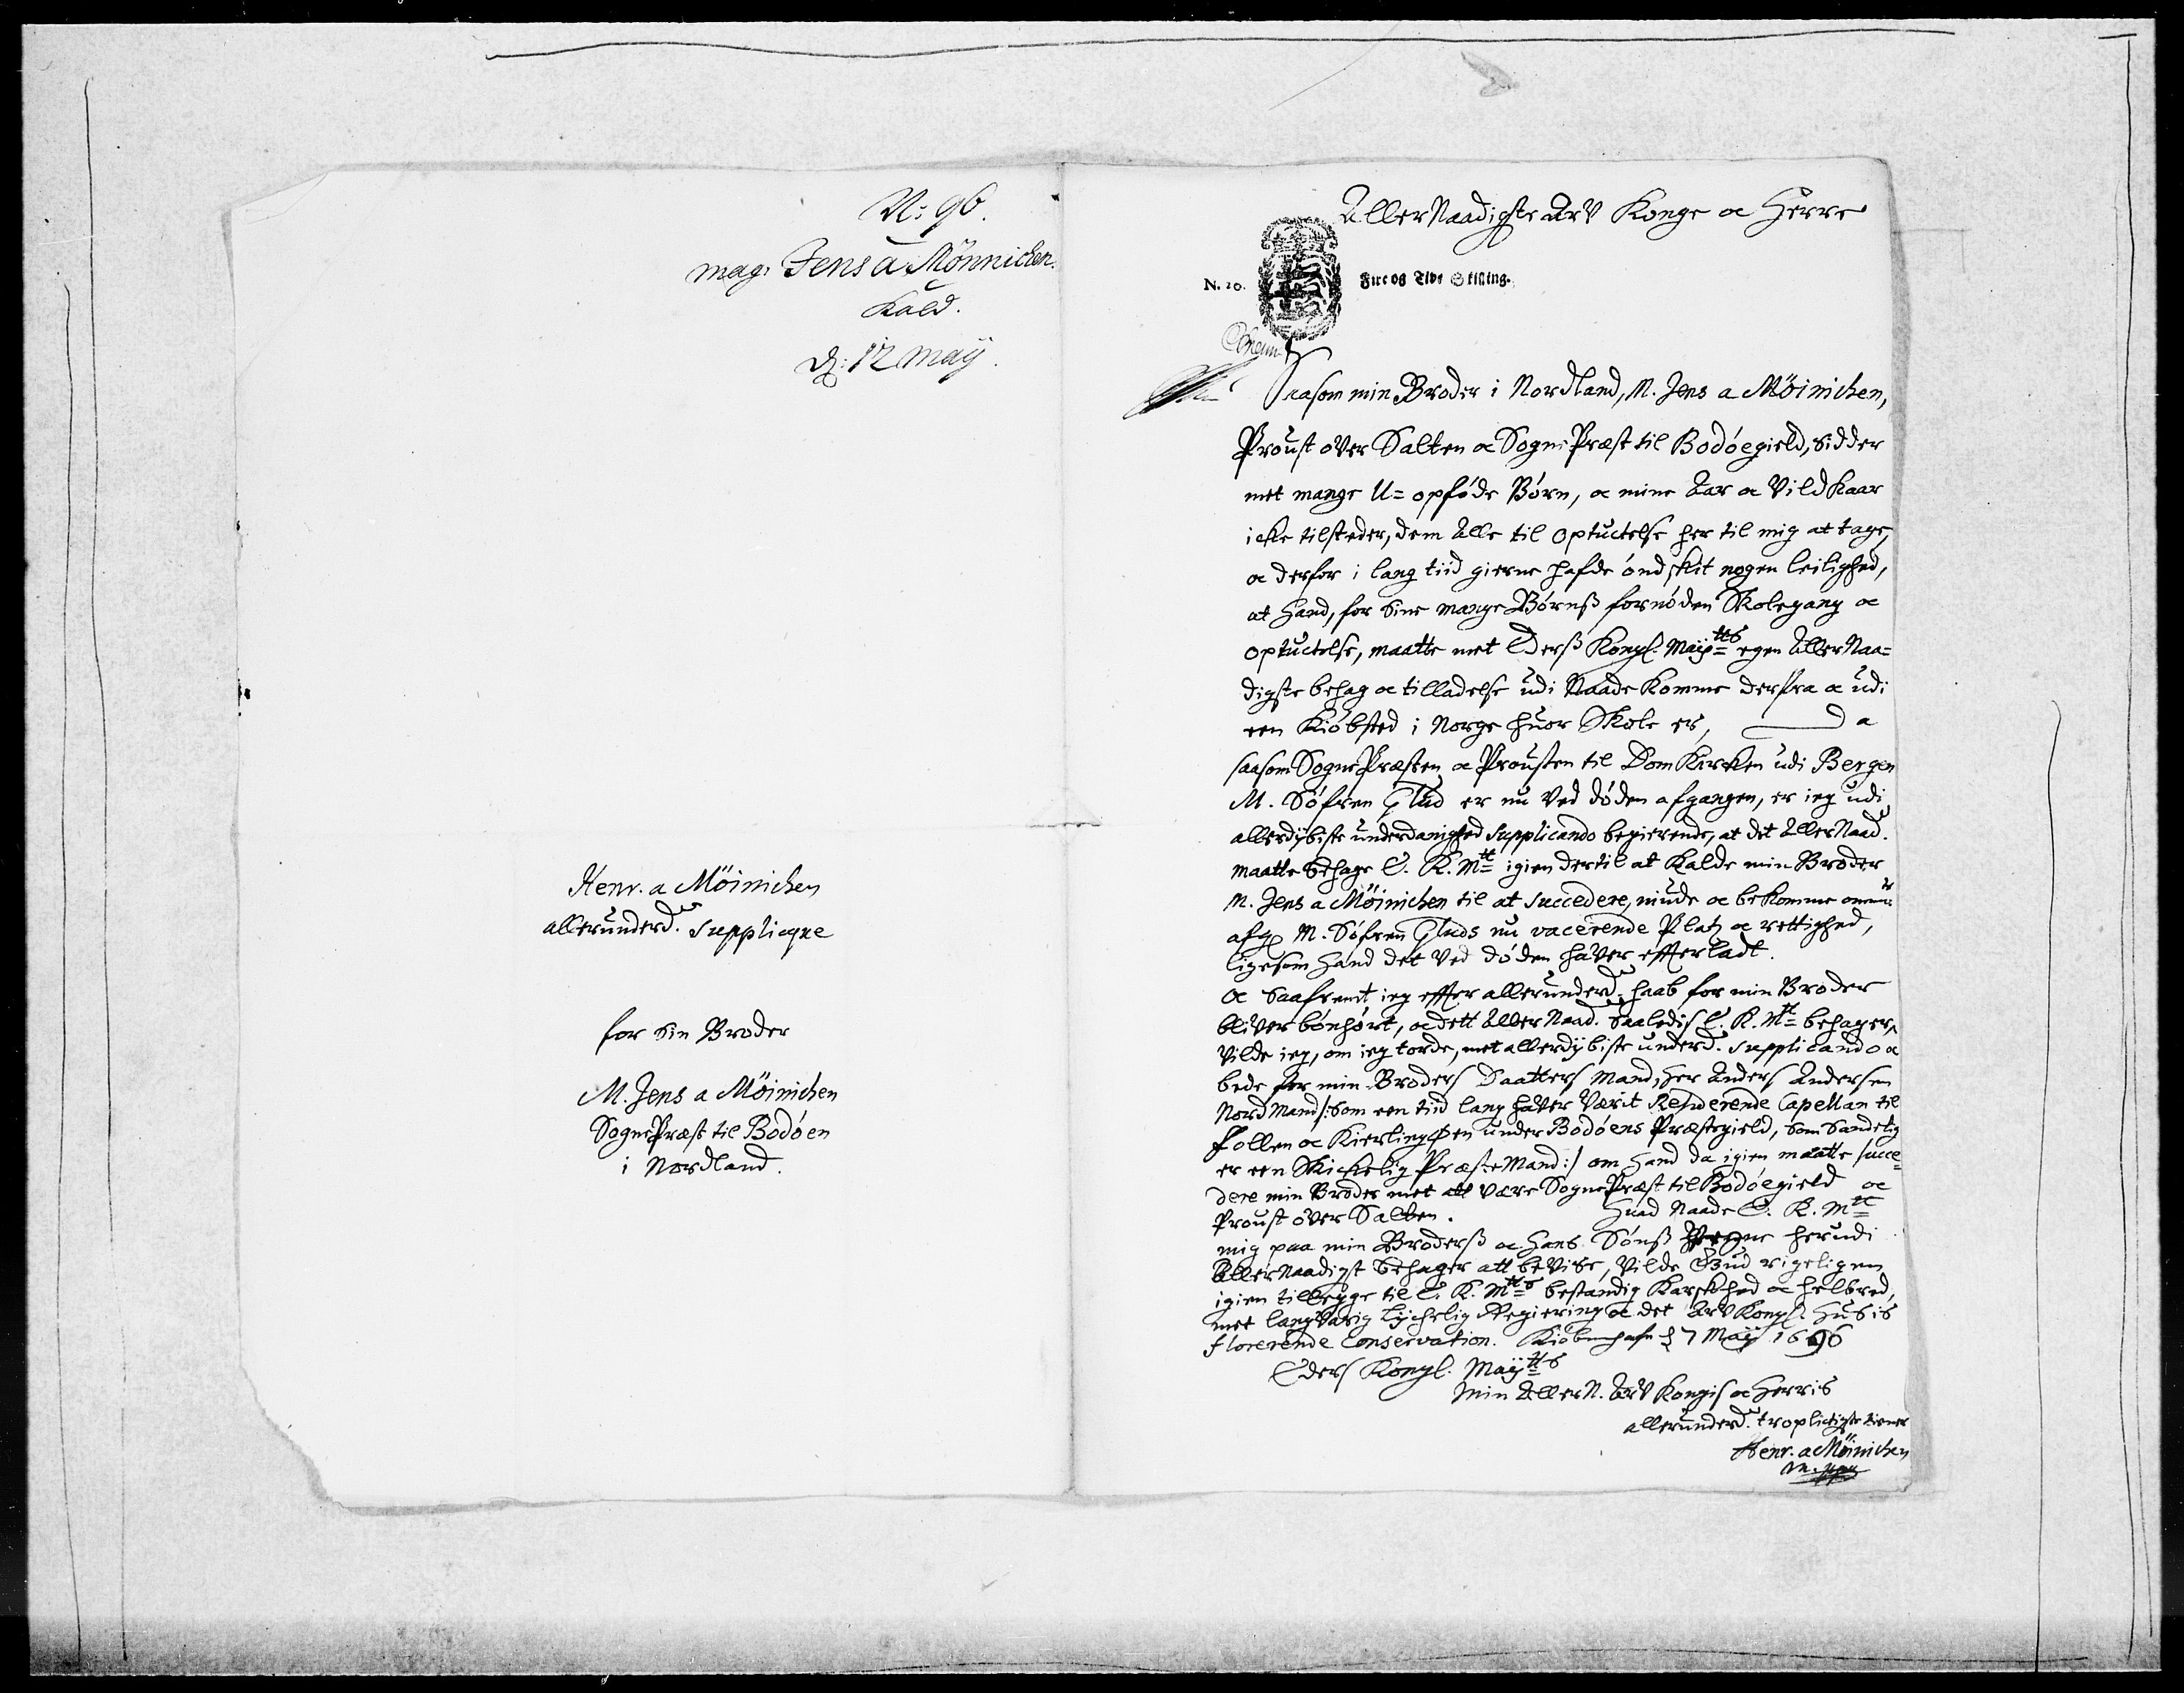 N: 96.
mag: Jens a Mönnichen.
Kald.
d: 12 maÿ.
Henr. a Möinichen
allerunderd. Supplique
for sin Broder
M. Jens a Möinichen
SognePræst til Bodöen
i Nordland.
AllerNaadigste Arv Konge oc Herre
N. 20. Fire og Tive Skilling.
Saasom min Broder i Nordland, M. Jens a Möinichen,
Proust over Salten oc SognePræst til Bodöegield, sidder
met mange U=opföde Börn, oc mine Aar oc Vildkaar
icke tilsteder, dem alle til optuctelse her til mig at tage,
oc derfor i lang tiid gierne hafde öndskit nogen leilighed,
at Hand, for sine mange Börnss fornöden Skolegang oc
optuctelse, maatte met Ederss Kongl. Maÿtts egen AllerNaa=
digste behag oc tilladelse udi Naade komme derfra oc udi
een Kiöbsted i Norge huor Skole er, da
saasom SognePræsten oc Prousten til DomKirken udi Bergen
M. Söfren Glud er nu ved döden afgangen, er ieg udi
allerdÿbiste underdanighed Supplicando begierende, at det AllerNaad.
maatte behage E. K. Mtt igien dertil at kalde min Broder
M. Jens a Möinichen til at succedere, niude oc bekomme
afg. M. Söfren Gluds nu vacerende Platz oc rettighed,
ligesom Hand det ved döden haver efterladt.
Oc saafremt ieg efter allerunderd. haab for min Broder
bliver bönhört, oc dett AllerNaad. saaledis E. K. Mtt behager,
vilde ieg, om ieg torde, met allerdÿbiste underd. supplicando oc
bede for min Broders Daatters Mand, Her Anders Andersen
NordMand /: som een tiid lang haver værit Residerende Capellan til
Follen oc Kierlingöen under Bodöens Præstegield, som sandelig
er een Skickelig PræsteMand :/ om Hand da igien maatte succe=
dere min Broder met att være SognePræst til Bodöegield oc
Proust over Salten. Huad Naade E. K. Mtt
mig paa min Broderss oc Hans Sönss Vegne herudi
AllerNaadigst behager att bevise, vilde Gud rigeligen
igien tillegge til E. K. Mtts bestandig Karskhed oc helbred,
met langvarig Lÿckelig Regiering oc det Arv Kongl. Husis
florerende Conservation. Kiöbenhafn d 7 Maÿ 1696
Eders Kongl. Maÿtts
Min AllerN. Arv Kongis oc Herris
allerunderd. troplictigste tiener
Henr. a Möinichen